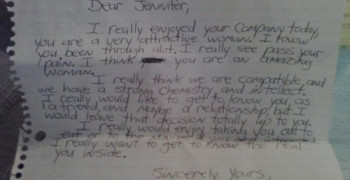 Dear Jennifer,
I really enjoyed your Company today,
you are a very attractive woman. I know
you been through alot. I really see pass your
pain. I think you are an amazing
woman.
I really think we are compatible, and
we have a strong chemistry and intellect.
I really would like to get to know you, as
a friend, and maybe a relationship, but I
would leave that decision totally up to you.
I really would enjoy taking you out to
eat or to the
I really want to get to know the real
you inside.
Sincerely Yours,